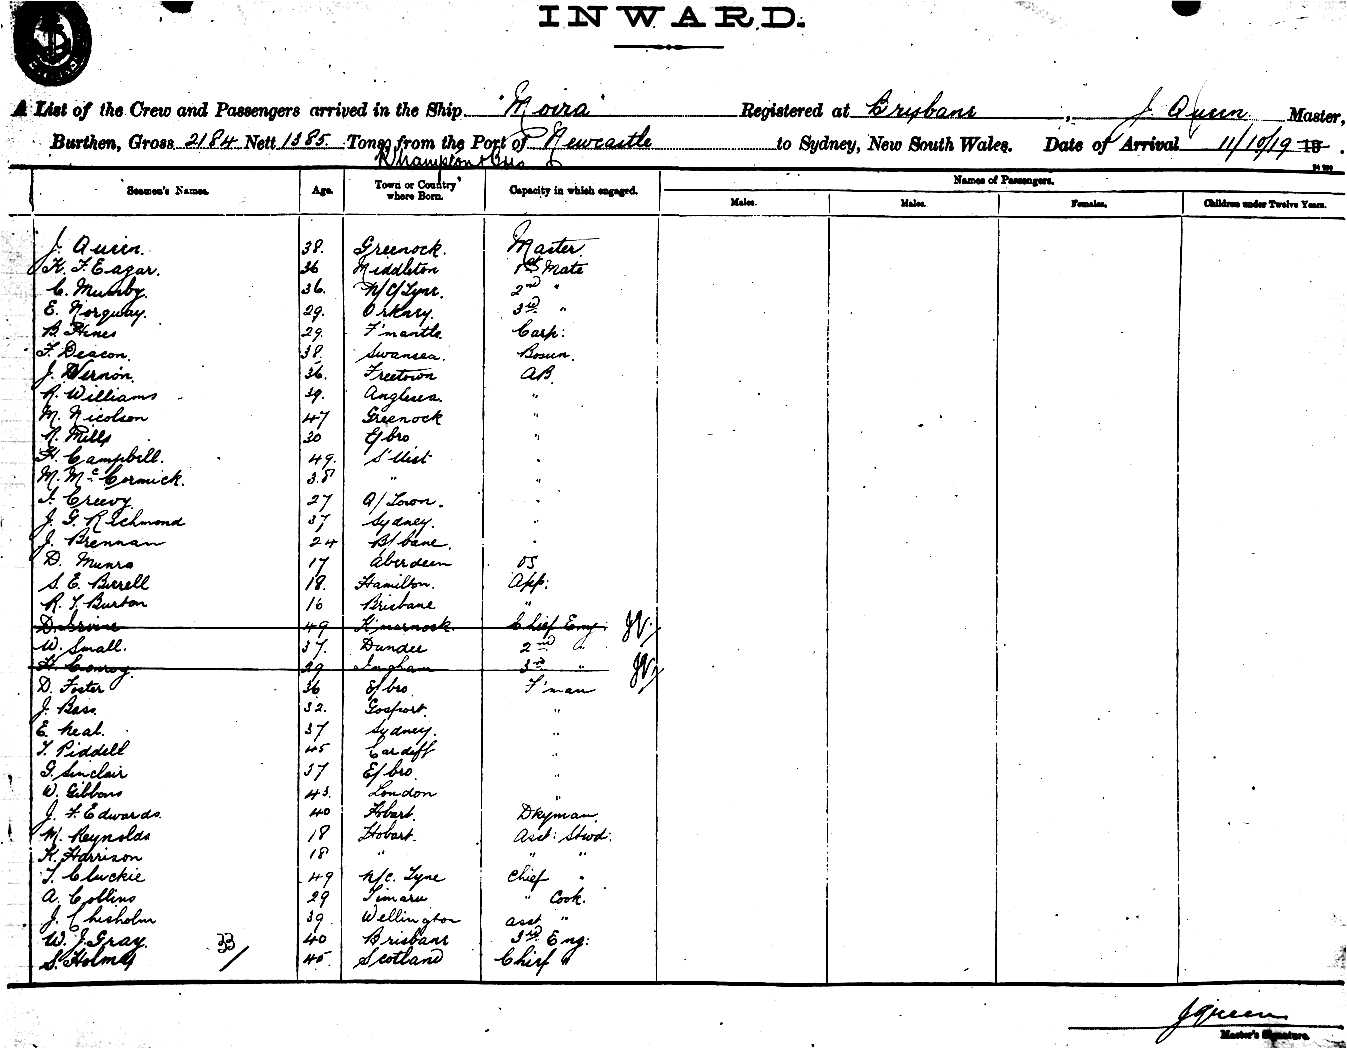 INWARD.
A List of the Crew and Passengers arrived in the Ship "Moira" Registered at Brisbane, J. Queen Master,
Burthen, Gross 2184 Nett 1385 Tons from the Port of Newcastle to Sydney, New South Wales. Date of Arrival 11/10/19 18
R'hampton &
Seamen's Names. Age. Town or Country where Born. Capacity in which engaged. Names of Passengers.
Males. Males. Females. Children under Twelve Years.
J. Queen. 38. Greenock. Master.
K. F. Eagar. 36 Middleton 1st Mate
C. Mumby. 36. N/C/Tyne. 2nd "
E. Norquay. 29. Orkney. 3rd "
B. Hines 29. F'mantle. Carp:
F. Deacon. 38. Swansea. Bosun.
J. Vernon. 36. Freetown AB.
R. Williams 39. Anglesea. "
M. Nicolson 47 Greenock "
R. Mills 30 E/bro "
H. Campbell. 49. S' Uist "
M. McCormick. 38 " "
J. Creevy. 27 A/Town. "
J. G. Richmond 37 Sydney. "
J. Brennan 24 B/bane. "
D. Munro 17 Aberdeen OS
S. E. Birrell 18. Hamilton. App:
R. T. Burton 16 Brisbane "
D. Irvine 49 K'marnock. Chief Eng.
W. Small. 37. Dundee 2nd "
H. Conroy. 29 Ingham 3rd "
D. Foster 36 E/bro F'man
J. Bass. 32. Gosport. "
E. Neal. 37 Sydney. "
T. Piddell 45 Cardiff "
G. Sinclair 37 E/bro. "
W. Gibbons 43. London "
J. F. Edwards. 40 Hobart. Dkyman.
M. Reynolds 18 Hobart. Asst: Stwd:
K. Harrison 18 " " "
T. Cluckie 49 N/C. Tyne Chief "
A. Collins 29 Timaru " Cook.
J. Chisholm 39 Wellington Asst "
W. J. Gray. 40 Brisbane 3rd Eng:
S. Holmes 45. Scotland Chief "
33
J Queen
Master's Signature.